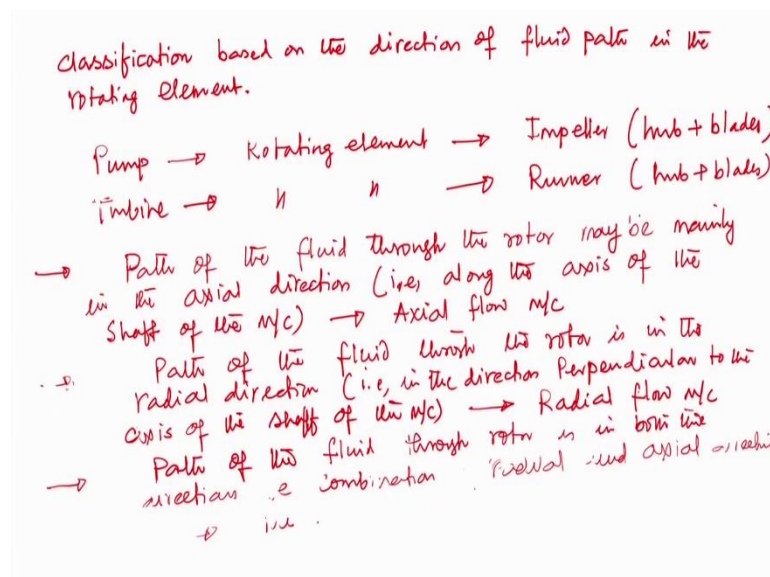 classification based on the direction of fluid path in the
rotating element.
Pump → Rotating element → Impeller (hub + blades)
Turbine → " " → Runner (hub + blades)
→ Path of the fluid through the rotor may be mainly
in the axial direction (i.e, along the axis of the
shaft of the M/C) → Axial flow M/C
→ Path of the fluid through the rotor is in the
radial direction (i.e, in the direction Perpendicular to the
axis of the shaft of the M/C) → Radial flow M/C
→ Path of the fluid through rotor is in both the
direction combination radial and axial
→